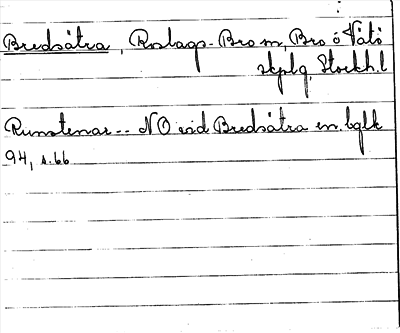 Bredsätra, Roslags-Bro sn, Bro o Vätö
skplg, Stockh.l
Runstenar -- NO vid Bredsätra en. bglk
94, s. 66